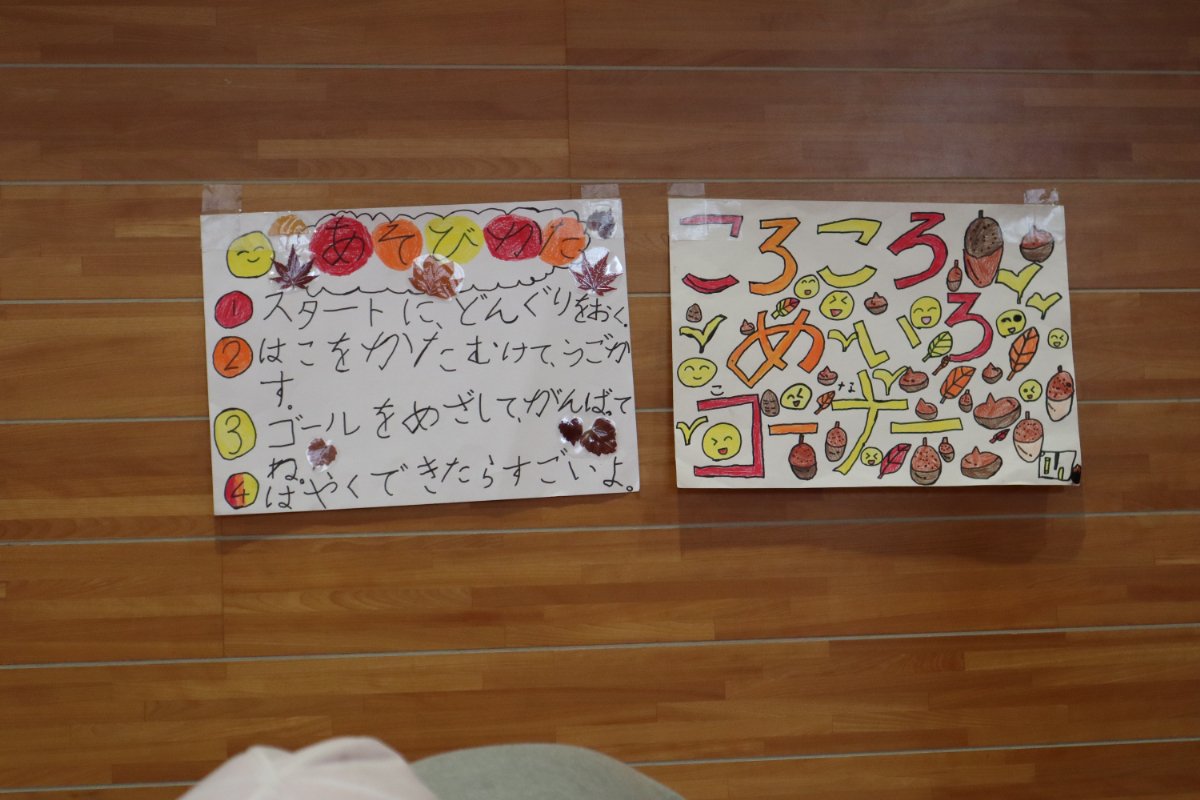 あそびかた
1 スタートに、どんぐりをおく。
2 はこをかたむけて、うごか
す。
3 ゴールをめざして、がんばって
ね。
4 はやくできたらすごいよ。
ころころ
めいろ
コーナー